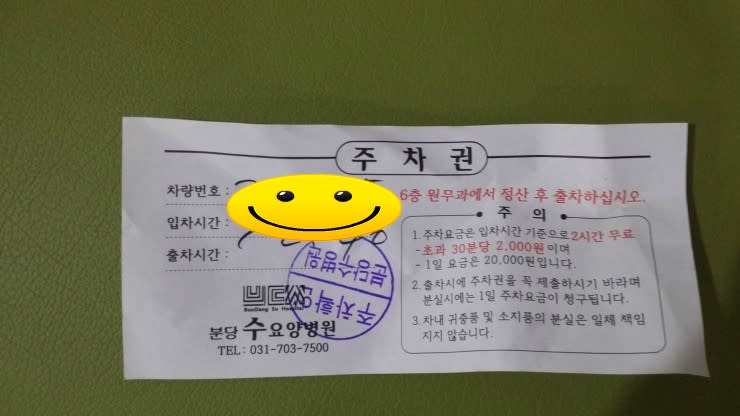 주 차 권
차량번호 :
입차시간 :
출차시간 :
BunDang Su Hospital
분당 수요양병원
TEL : 031-703-7500
분당수병원
주차확인
6층 원무과에서 정산 후 출차하십시오.
• 주 의 •
1. 주차요금은 입차시간 기준으로 2시간 무료
- 초과 30분당 2,000원 이며
- 1일 요금은 20,000원입니다.
2. 출차시에 주차권을 꼭 제출하시기 바라며
분실시에는 1일 주차요금이 청구됩니다.
3. 차내 귀중품 및 소지품의 분실은 일체 책임
지지 않습니다.